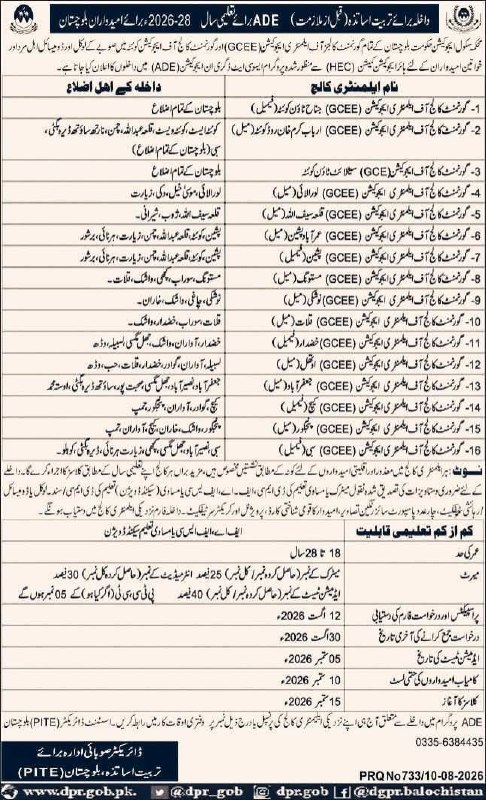 داخلہ برائے تربیت اساتذہ (قبل از ملازمت) ADE برائے تعلیمی سال 28-2026ء برائے امیدواران بلوچستان
محکمہ سکول ایجوکیشن حکومت بلوچستان کے تمام گورنمنٹ کالجز آف ایلیمنٹری ایجوکیشن (GCEE) اور گورنمنٹ کالج آف ایجوکیشن کوئٹہ میں صوبے کے لوکل اور ڈومیسائل اہل مرد اور
خواتین امیدواران کے لئے ہائر ایجوکیشن کمیشن (HEC) سے منظور شدہ پروگرام ایسوسی ایٹ ڈگری ان ایجوکیشن (ADE) میں داخلوں کا اعلان کیا جاتا ہے۔
نام ایلمنٹری کالج
داخلہ کے اهل اضلاع
1- گورنمنٹ کالج آف ایلیمنٹری ایجوکیشن (GCEE) جناح ٹاؤن کوئٹہ (فیمیل)
بلوچستان کے تمام اضلاع
2- گورنمنٹ کالج آف ایلیمنٹری ایجوکیشن (GCEE) ارباب کرم خان روڈ کوئٹہ (میل)
کوئٹہ ایسٹ، کوئٹہ ویسٹ، قلعہ عبداللہ، چمن، نارتھ ساؤتھ ڈیرہ بگٹی،
سبی (بلوچستان کے تمام اضلاع)
3- گورنمنٹ کالج آف ایجوکیشن (GCE) سیٹلائٹ ٹاؤن کوئٹہ
بلوچستان کے تمام اضلاع
4- گورنمنٹ کالج آف ایلیمنٹری ایجوکیشن (GCEE) لورالائی (میل)
لورالائی، موسیٰ خیل، دکی، زیارت
5- گورنمنٹ کالج آف ایلیمنٹری ایجوکیشن (GCEE) قلعہ سیف اللہ (میل)
قلعہ سیف اللہ، ژوب، شیرانی۔
6- گورنمنٹ کالج آف ایلیمنٹری ایجوکیشن (GCEE) عمر آباد پشین (میل)
پشین، کوئٹہ، قلعہ عبداللہ، چمن، زیارت، ہرنائی، برشور
7- گورنمنٹ کالج آف ایلیمنٹری ایجوکیشن (GCEE) پشین (فیمیل)
پشین، کوئٹہ، قلعہ عبداللہ، چمن، زیارت، ہرنائی، برشور
8- گورنمنٹ کالج آف ایلیمنٹری ایجوکیشن (GCEE) مستونگ (میل)
مستونگ، سوراب، کچھی، واشک، قلات۔
9- گورنمنٹ کالج آف ایلیمنٹری ایجوکیشن (GCEE) نوشکی (میل)
نوشکی، چاغی، واشک، خاران۔
10- گورنمنٹ کالج آف ایلیمنٹری ایجوکیشن (GCEE) قلات (میل)
قلات، سوراب، خضدار، واشک۔
11- گورنمنٹ کالج آف ایلیمنٹری ایجوکیشن (GCEE) خضدار (فیمیل)
خضدار، آواران، واشک، جھل مگسی، لسبیلہ، وڈھ
12- گورنمنٹ کالج آف ایلیمنٹری ایجوکیشن (GCEE) اوتھل (میل)
لسبیلہ، آواران، گوادر، خضدار، قلات، حب، وڈھ
13- گورنمنٹ کالج آف ایلیمنٹری ایجوکیشن (GCEE) جعفر آباد (میل)
جعفر آباد، نصیر آباد، جھل مگسی، صحبت پور، ساؤتھ ڈیرہ بگٹی، اوستہ محمد
14- گورنمنٹ کالج آف ایلیمنٹری ایجوکیشن (GCEE) کیچ (فیمیل)
کیچ، گوادر، آواران، پنجگور، تمپ
15- گورنمنٹ کالج آف ایلیمنٹری ایجوکیشن (GCEE) پنجگور (میل)
پنجگور، واشک، خاران، کیچ، آواران، تمپ
16- گورنمنٹ کالج آف ایلیمنٹری ایجوکیشن (GCEE) سبی (فیمیل)
سبی، نصیر آباد، جھل مگسی، کچھی، زیارت، ہرنائی، ڈیرہ بگٹی، کوہلو۔
نوٹ: ہر ایلیمنٹری کالج میں معذور اور اقلیتی امیدواروں کے لئے کوٹہ کے مطابق نشستیں مخصوص ہیں۔ مزید براں ہر کالج اپنے تعلیمی سال کے مطابق کلاسز کا اجراء کرے گا۔ داخلے
کے لئے ضروری دستاویزات کی تصدیق شدہ نقول میٹرک یا مساوی تعلیم کی ڈی ایم سی، ایف اے، ایف ایس سی یا مساوی (سیکنڈ ڈویژن) تعلیم کی ڈی ایم سی/سند، لوکل یا ڈومیسائل
/ رہائشی سرٹیفکیٹ، چار عدد پاسپورٹ سائز رنگین تصاویر، امیدوار کا قومی شناختی کارڈ، اور کریکٹر سرٹیفکیٹ۔ داخلہ فارم نزدیکی ایلیمنٹری کالج میں دستیاب ہونگے۔
کم از کم تعلیمی قابلیت
ایف اے، ایف ایس سی یا مساوی تعلیم سیکنڈ ڈویژن
عمر کی حد
18 تا 28 سال
میرٹ
میٹرک کے نمبر (حاصل کردہ نمبر/کل نمبر) 25 فیصد انٹرمیڈیٹ کے نمبر (حاصل کردہ نمبر/کل نمبر) 30 فیصد
ایڈمیشن ٹیسٹ کے نمبر (حاصل کردہ نمبر/کل نمبر) 40 فیصد پی ٹی سی/سی ٹی (اگر کیا ہو) کے 05 نمبر ہوں گے
پراسپیکٹس اور درخواست فارم کی دستیابی
12 اگست 2026ء
درخواست جمع کرانے کی آخری تاریخ
30 اگست 2026ء
ایڈمیشن ٹیسٹ کی تاریخ
05 ستمبر 2026ء
کامیاب امیدواروں کی حتمی لسٹ
10 ستمبر 2026ء
کلاسز کا آغاز
15 ستمبر 2026ء
ADE پروگرام میں داخلے سے متعلق آج ہی اپنے نزدیکی ایلیمنٹری کالج کی پرنسپل یا درج ذیل نمبر پر دفتری اوقات کار میں رابطہ کریں۔ اسسٹنٹ ڈائریکٹر (PITE) بلوچستان
0335-6384435
ڈائریکٹر صوبائی ادارہ برائے
تربیت اساتذہ، بلوچستان (PITE)
PRQ No 733/10-08-2026
www.dpr.gob.pk. @dpr_gob @dpr.gob @dgpr.balochistan